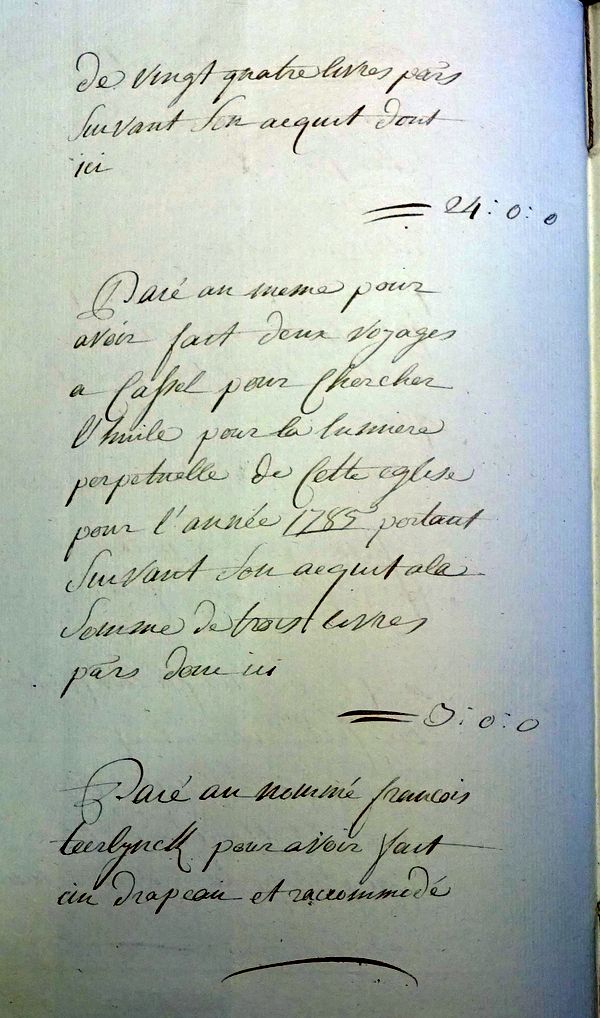 de vingt quatre livres pars
suivant son acquit dont
ici
24 : 0 : 0
Paié au meme pour
avoir fait deux voyages
a Cassel pour Chercher
l'huile pour la lumiere
perpetuelle de Cette eglise
pour l'année 1785 portant
suivant son acquit a la
somme de trois livres
pars donc ici
3 : 0 : 0
Paié au nommé francois
teerlynck pour avoir fait
un drapeau et raccommodé